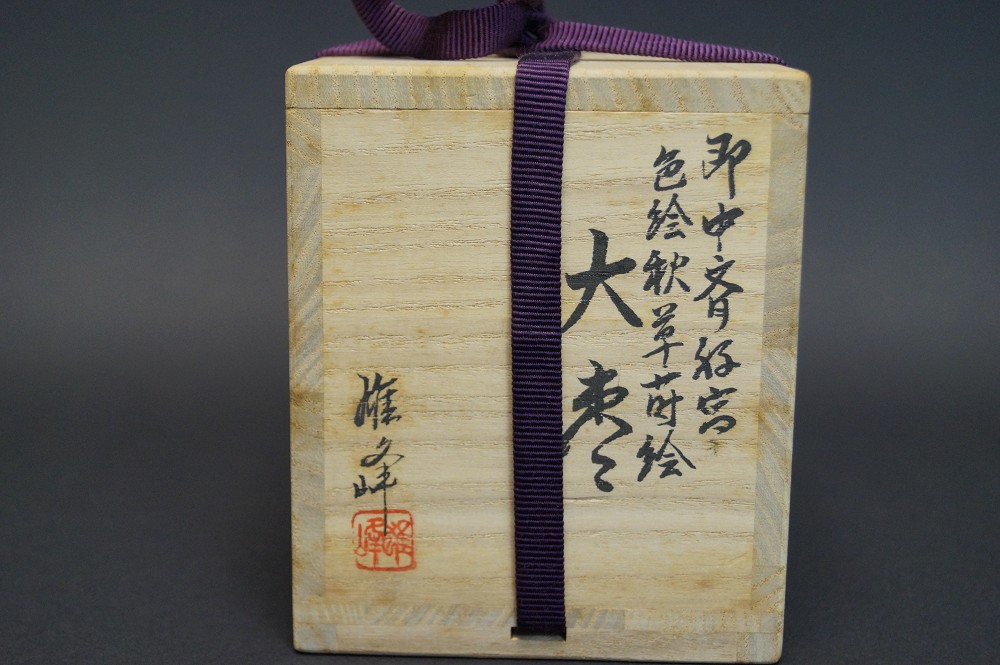 即中斉好写
色絵秋草蒔絵
大棗
雄峰